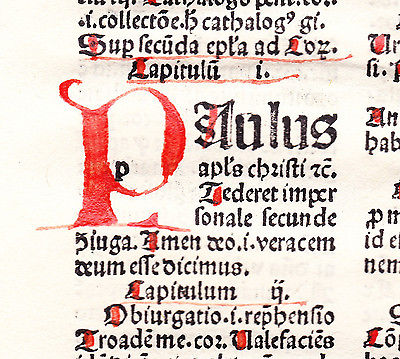 .i. collectõe.ħ cathalogꝰ gi.
Sup secũda epl̃a ad Coꝛ.
Capitulũ i.
PAulus
p
apl̃s christi ⁊c̃.
Tederet imper
sonale secunde
Ur
si.
An
hab
ꝯiuga. Amen deo.i. veracem
deum esse dicimus.
Capitulum ij.
Obiurgatio.i. rep̃hensio
Troadẽ me. coꝛ. Ualefaciẽs
p̱ m
id e
nem
A
Cõp